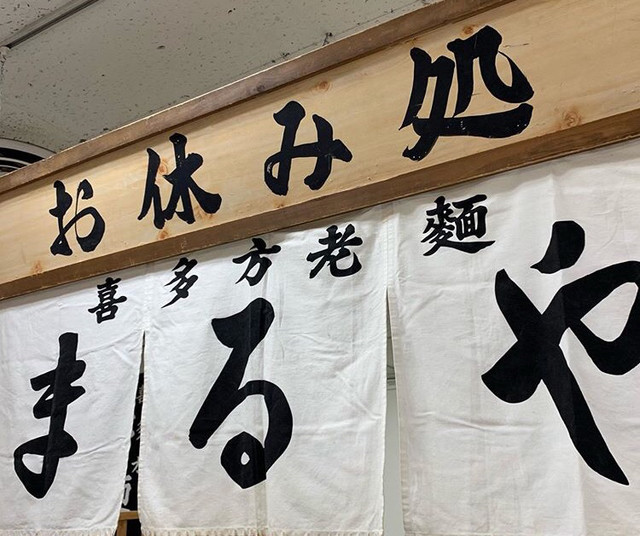 お休み処
喜多方老麺
まるや